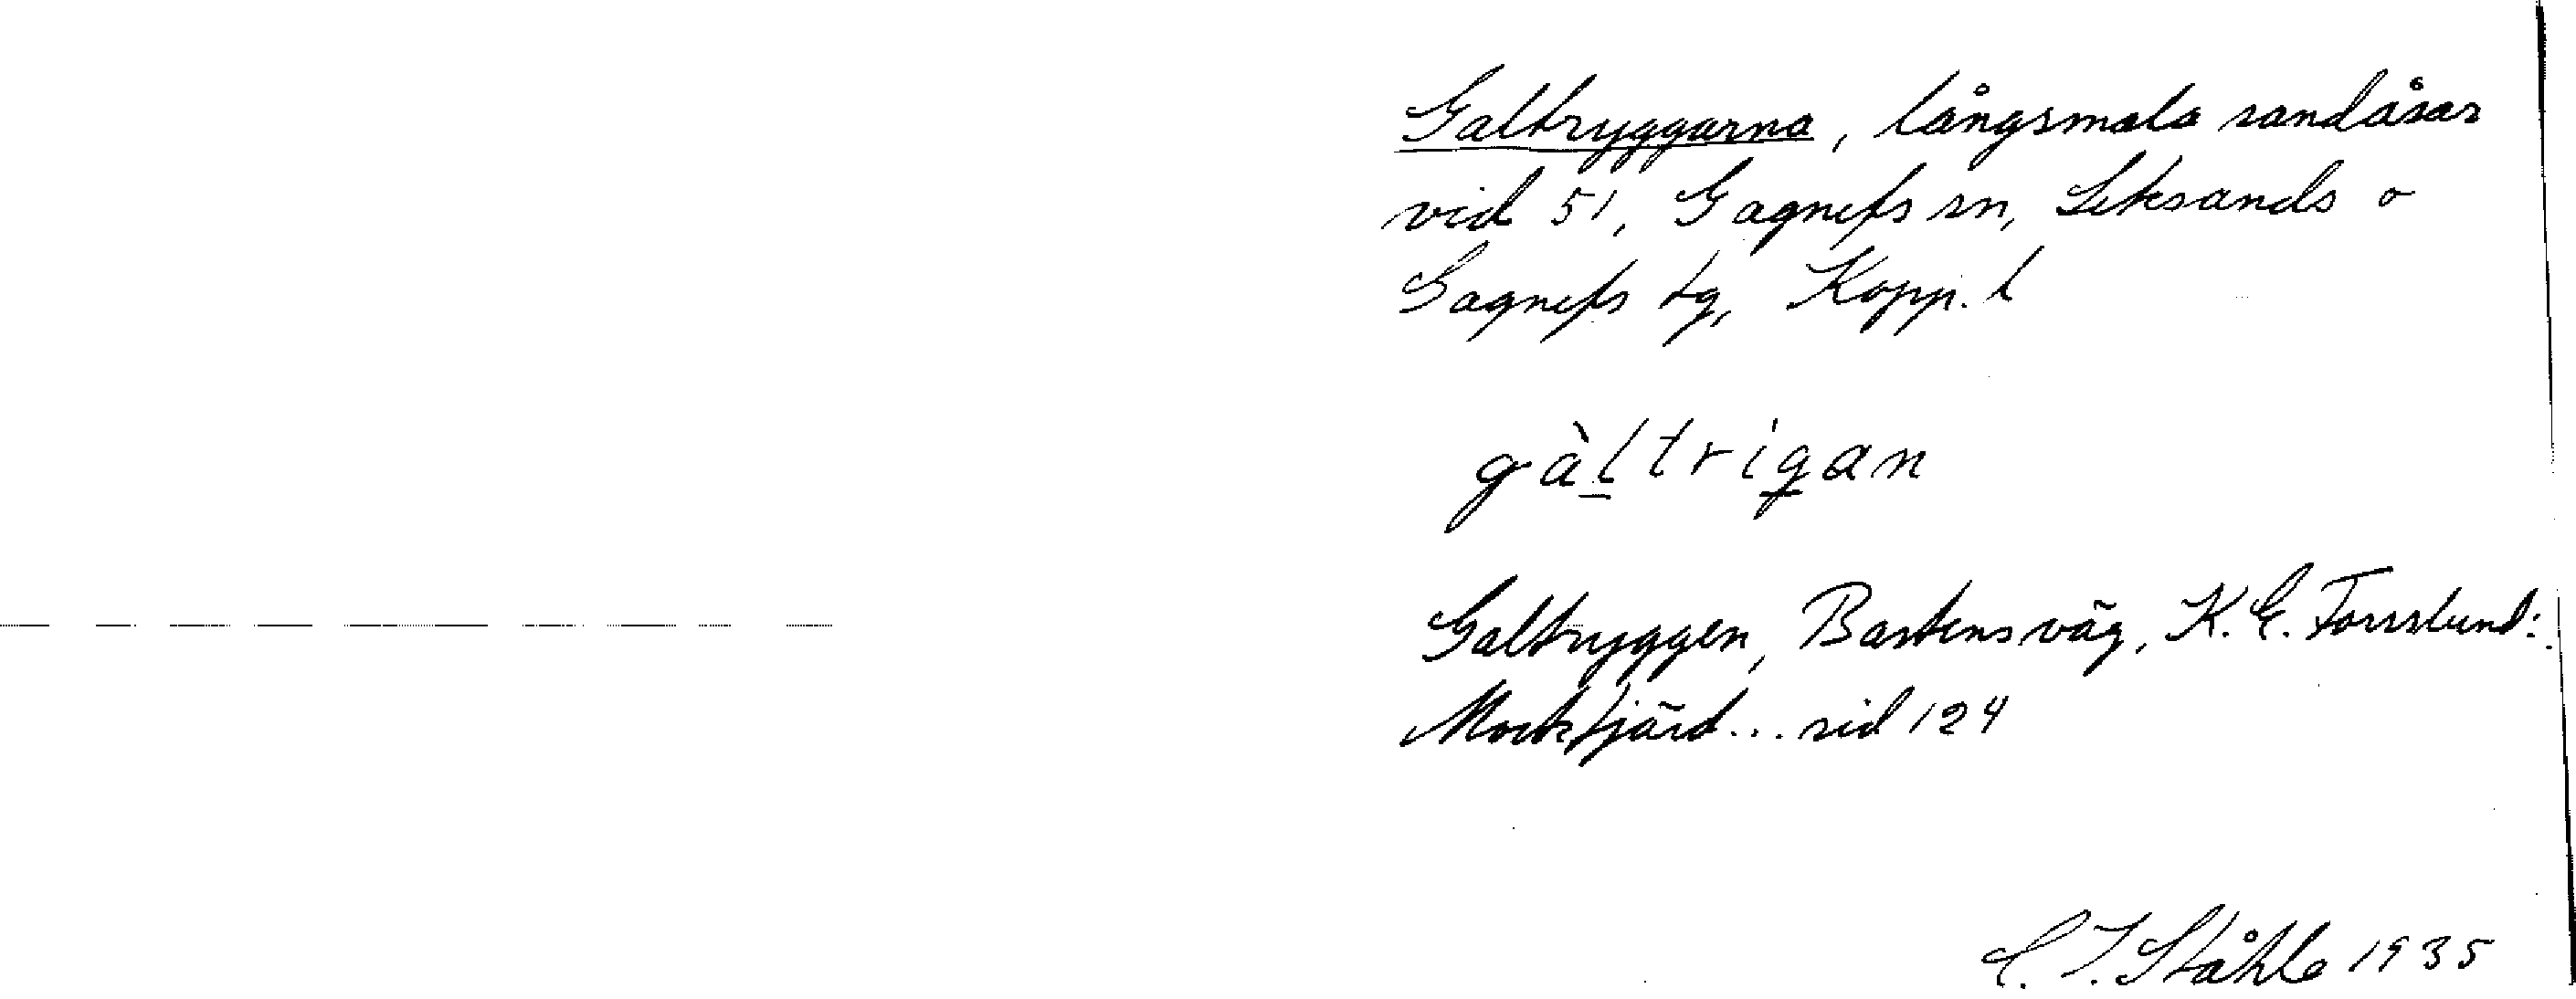 Galtryggarna, långsmala sandåsar
vid 51, Gagnefs sn, Leksands o
Gagnefs tg, Kopp. l
gàltrigan
Galtryggen, Bastens väg, K. E. Forsslund:
Mockfjärd... sid 124
C. I. Ståhle 1935